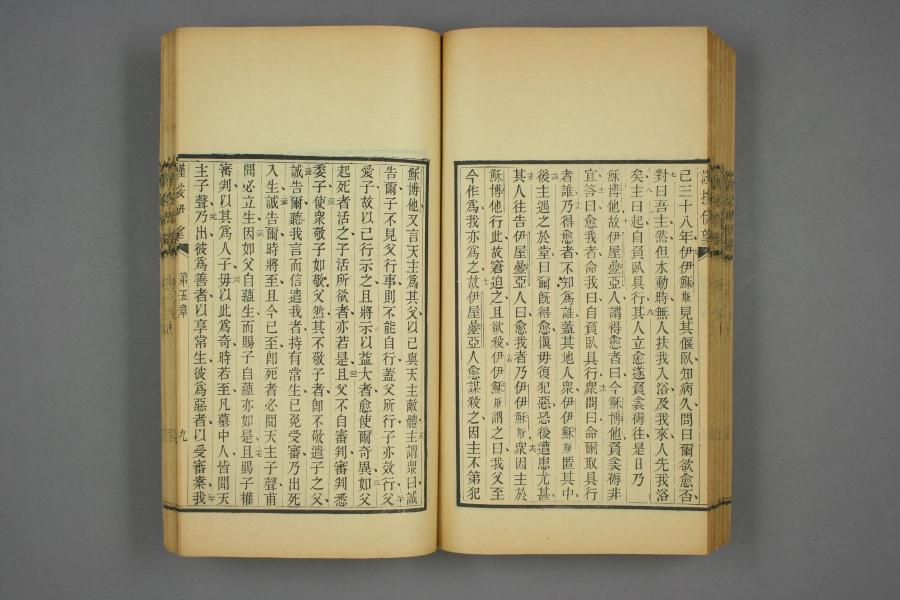 已三十八年伊伊穌斯見其偃臥知病久問曰爾欲愈否
對曰吾主然但水動時無人扶我入浴及我來人先我浴
矣主曰起自負臥具行其人立愈遂負衾褥往是日乃
穌博他故伊屋疊亞人謂得愈者曰今穌博他負衾褥非
宜答曰愈我者命我曰自負臥具行衆問曰命爾取具行
者誰乃得愈者不知為誰蓋其地人衆伊伊穌斯匿其中
後主遇之於堂曰爾旣得愈愼毋復犯惡恐後遭患尤甚
其人往告伊屋疊亞人曰愈我者乃伊伊穌斯衆因主於
穌博他行此故窘迫之且欲殺伊伊穌斯謂之曰我父至
今作為我亦為之故伊屋疊亞人愈謀殺之因主不第犯
穌博他又言天主為其父以已與天主敵體主謂衆曰誠
告爾子不見父行事則不能自行蓋父所行子亦效行父
愛子故以已行示之且將示以益大者愈使爾奇異如父
起死者活之子活所欲者亦若是且父不自審判審判悉
委子使衆敬子如敬父然其不敬子者卽不敬遣子之父
誠告爾聽我言而信遣我者持有常生已免受審乃出死
入生誠告爾時將至且今已至卽死者必聞天主子聲甫
聞必立生因如父自蘊生而賜子自蘊亦如是且賜子權
審判以其為人子毋以此為奇時若至凡墓中人皆聞天
主子聲乃出彼為善者以享常生彼為惡者以受審案我
第五章
九